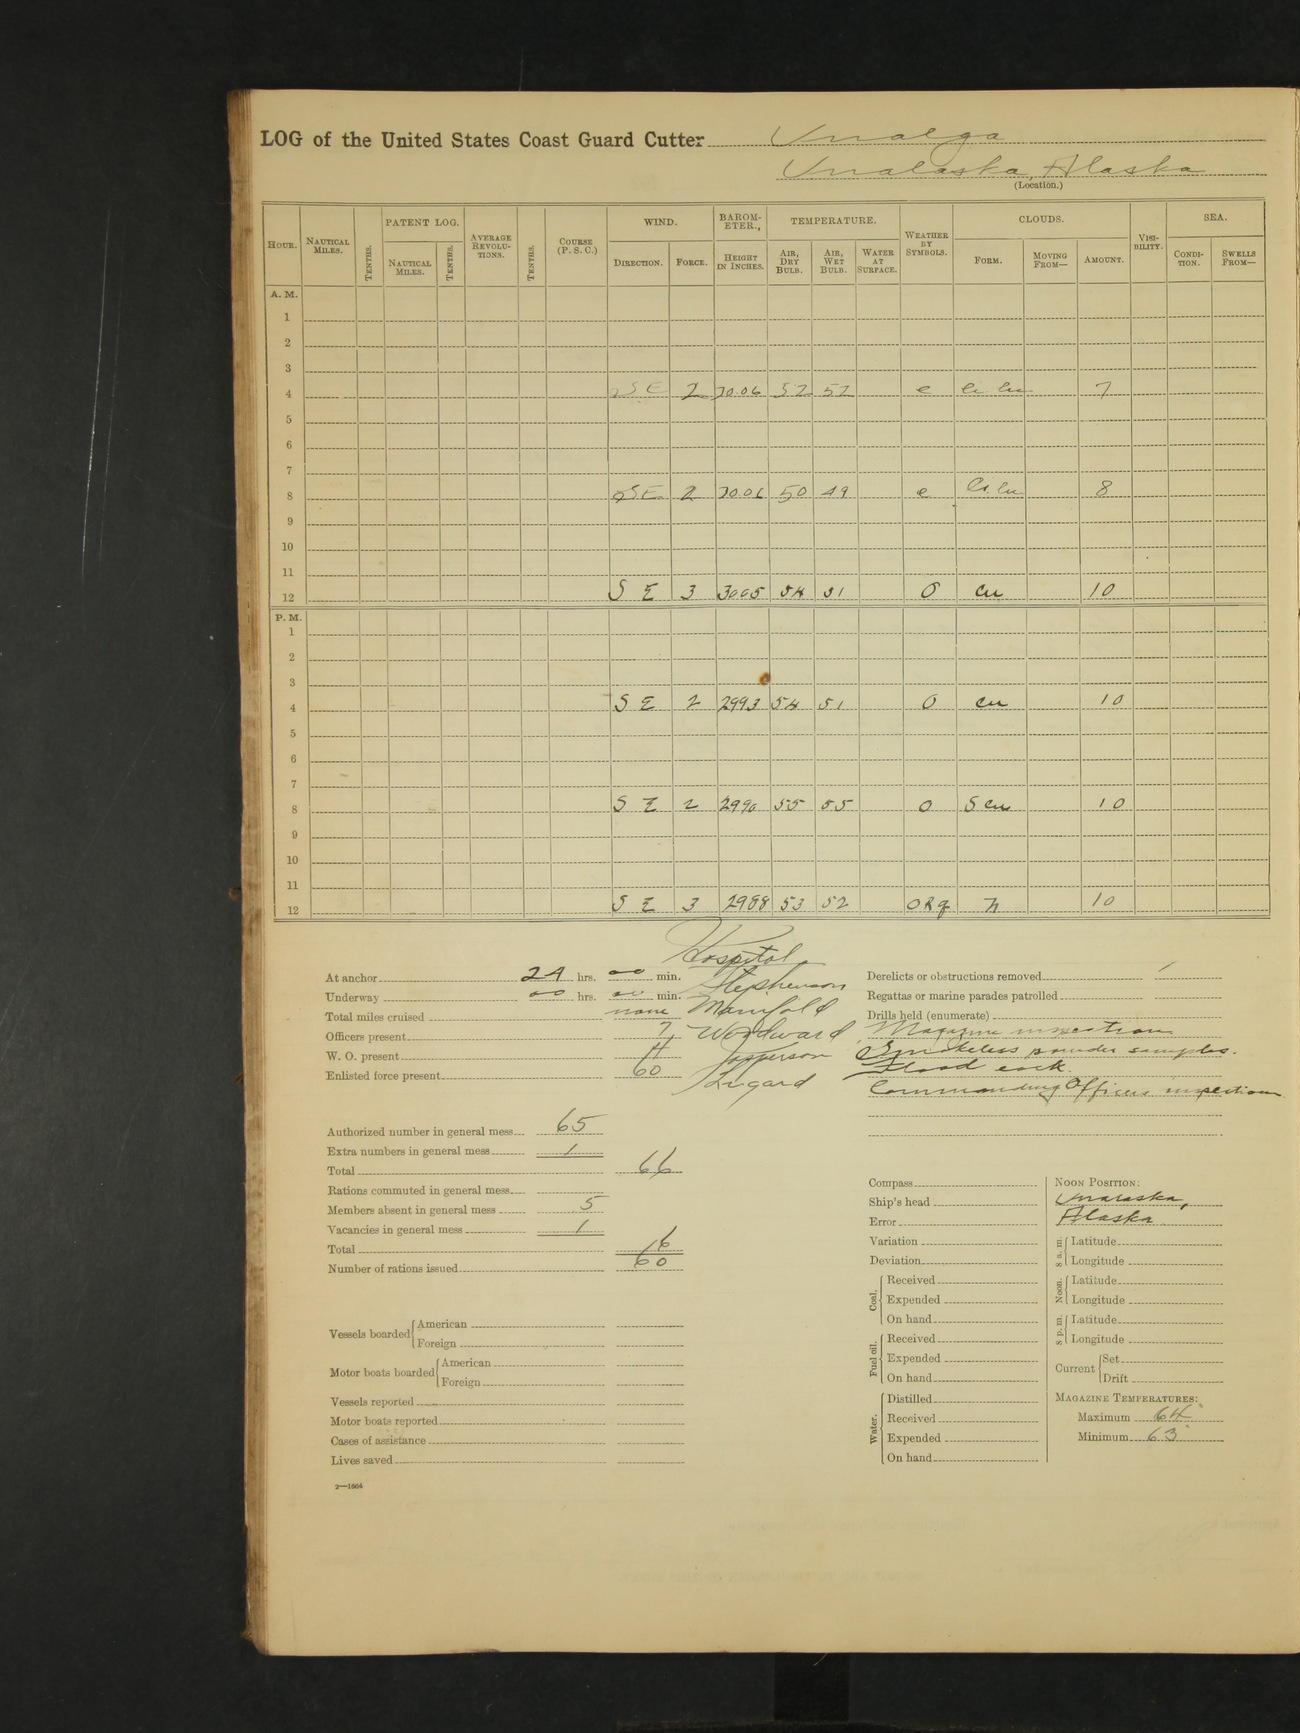 LOG of the United States Coast Guard Cutter Unalga
Unalaska, Alaska
(Location.)
HOUR. NAUTICAL MILES. TENTHS. PATENT LOG. NAUTICAL MILES. TENTHS. AVERAGE REVOLUTIONS. TENTHS. COURSE (P. S. C.) WIND. DIRECTION. FORCE. BAROMETER., HEIGHT IN INCHES. TEMPERATURE. AIR, DRY BULB. AIR, WET BULB. WATER AT SURFACE. WEATHER BY SYMBOLS. CLOUDS. FORM. MOVING FROM— AMOUNT. VISIBILITY. SEA. CONDITION. SWELLS FROM—
A. M.
1
2
3
4 SE 2 30.06 52 52 c Ci. Cu 7
5
6
7
8 SE 2 30.06 50 49 c Ci. Cu 8
9
10
11
12 S E 3 3005 54 51 O Cu 10
P. M.
1
2
3
4 S E 2 2993 54 51 O Cu 10
5
6
7
8 S E 2 2990 55 55 O S Cu 10
9
10
11
12 S E 3 2988 53 52 ORq N 10
Hospital
Stephenson
Manifold
Woodward
Jepperson
Lugard
At anchor 24 hrs. 00 min.
Underway 00 hrs. 00 min.
Total miles cruised none
Officers present 7
W. O. present 4
Enlisted force present 60
Authorized number in general mess 65
Extra numbers in general mess 1
Total 66
Rations commuted in general mess
Members absent in general mess 5
Vacancies in general mess 1
Total 6
Number of rations issued 60
Vessels boarded American
Foreign
Motor boats boarded American
Foreign
Vessels reported
Motor boats reported
Cases of assistance
Lives saved
2—1664
Derelicts or obstructions removed
Regattas or marine parades patrolled
Drills held (enumerate)
Magazine inspection
Smokeless powder samples.
Flood cock.
Commanding Officers inspection
Compass
Ship's head
Error
Variation
Deviation
Coal. Received
Expended
On hand
Fuel oil. Received
Expended
On hand
Water. Distilled
Received
Expended
On hand
NOON POSITION:
Unalaska,
Alaska
8 a. m. Latitude
Longitude
Noon. Latitude
Longitude
8 p. m. Latitude
Longitude
Current Set
Drift
MAGAZINE TEMPERATURES:
Maximum 64°
Minimum 63°